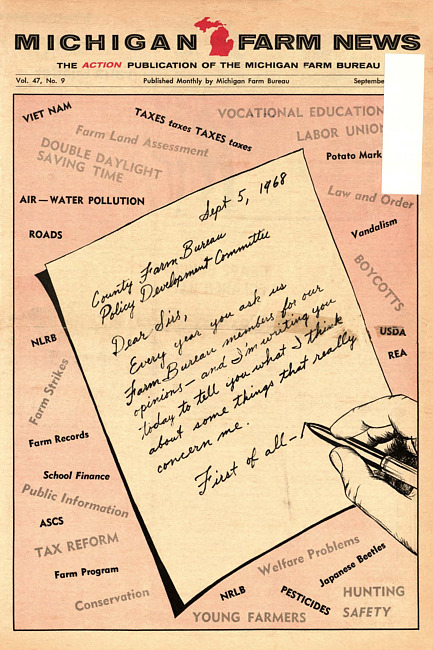 MICHIGAN FARM NEWS
THE ACTION PUBLICATION OF THE MICHIGAN FARM BUREAU
Vol. 47, No. 9 Published Monthly by Michigan Farm Bureau September
VIET NAM
TAXES taxes TAXES taxes
VOCATIONAL EDUCATION
Farm Land Assessment
LABOR UNION
DOUBLE DAYLIGHT
SAVING TIME
Potato Mark
AIR—WATER POLLUTION
Law and Order
ROADS
Vandalism
BOYCOTTS
Sept 5, 1968
County Farm Bureau
Policy Development Committee
Dear Sirs,
Every year you ask us
Farm Bureau members for our
opinions— and I'm writing you
today to tell you what I think
about some things that really
concern me.
First of all—
NLRB
USDA
REA
Farm Strikes
Farm Records
School Finance
Public Information
ASCS
TAX REFORM
Farm Program
Conservation
Welfare Problems
Japanese Beetles
NRLB
PESTICIDES
HUNTING
SAFETY
YOUNG FARMERS